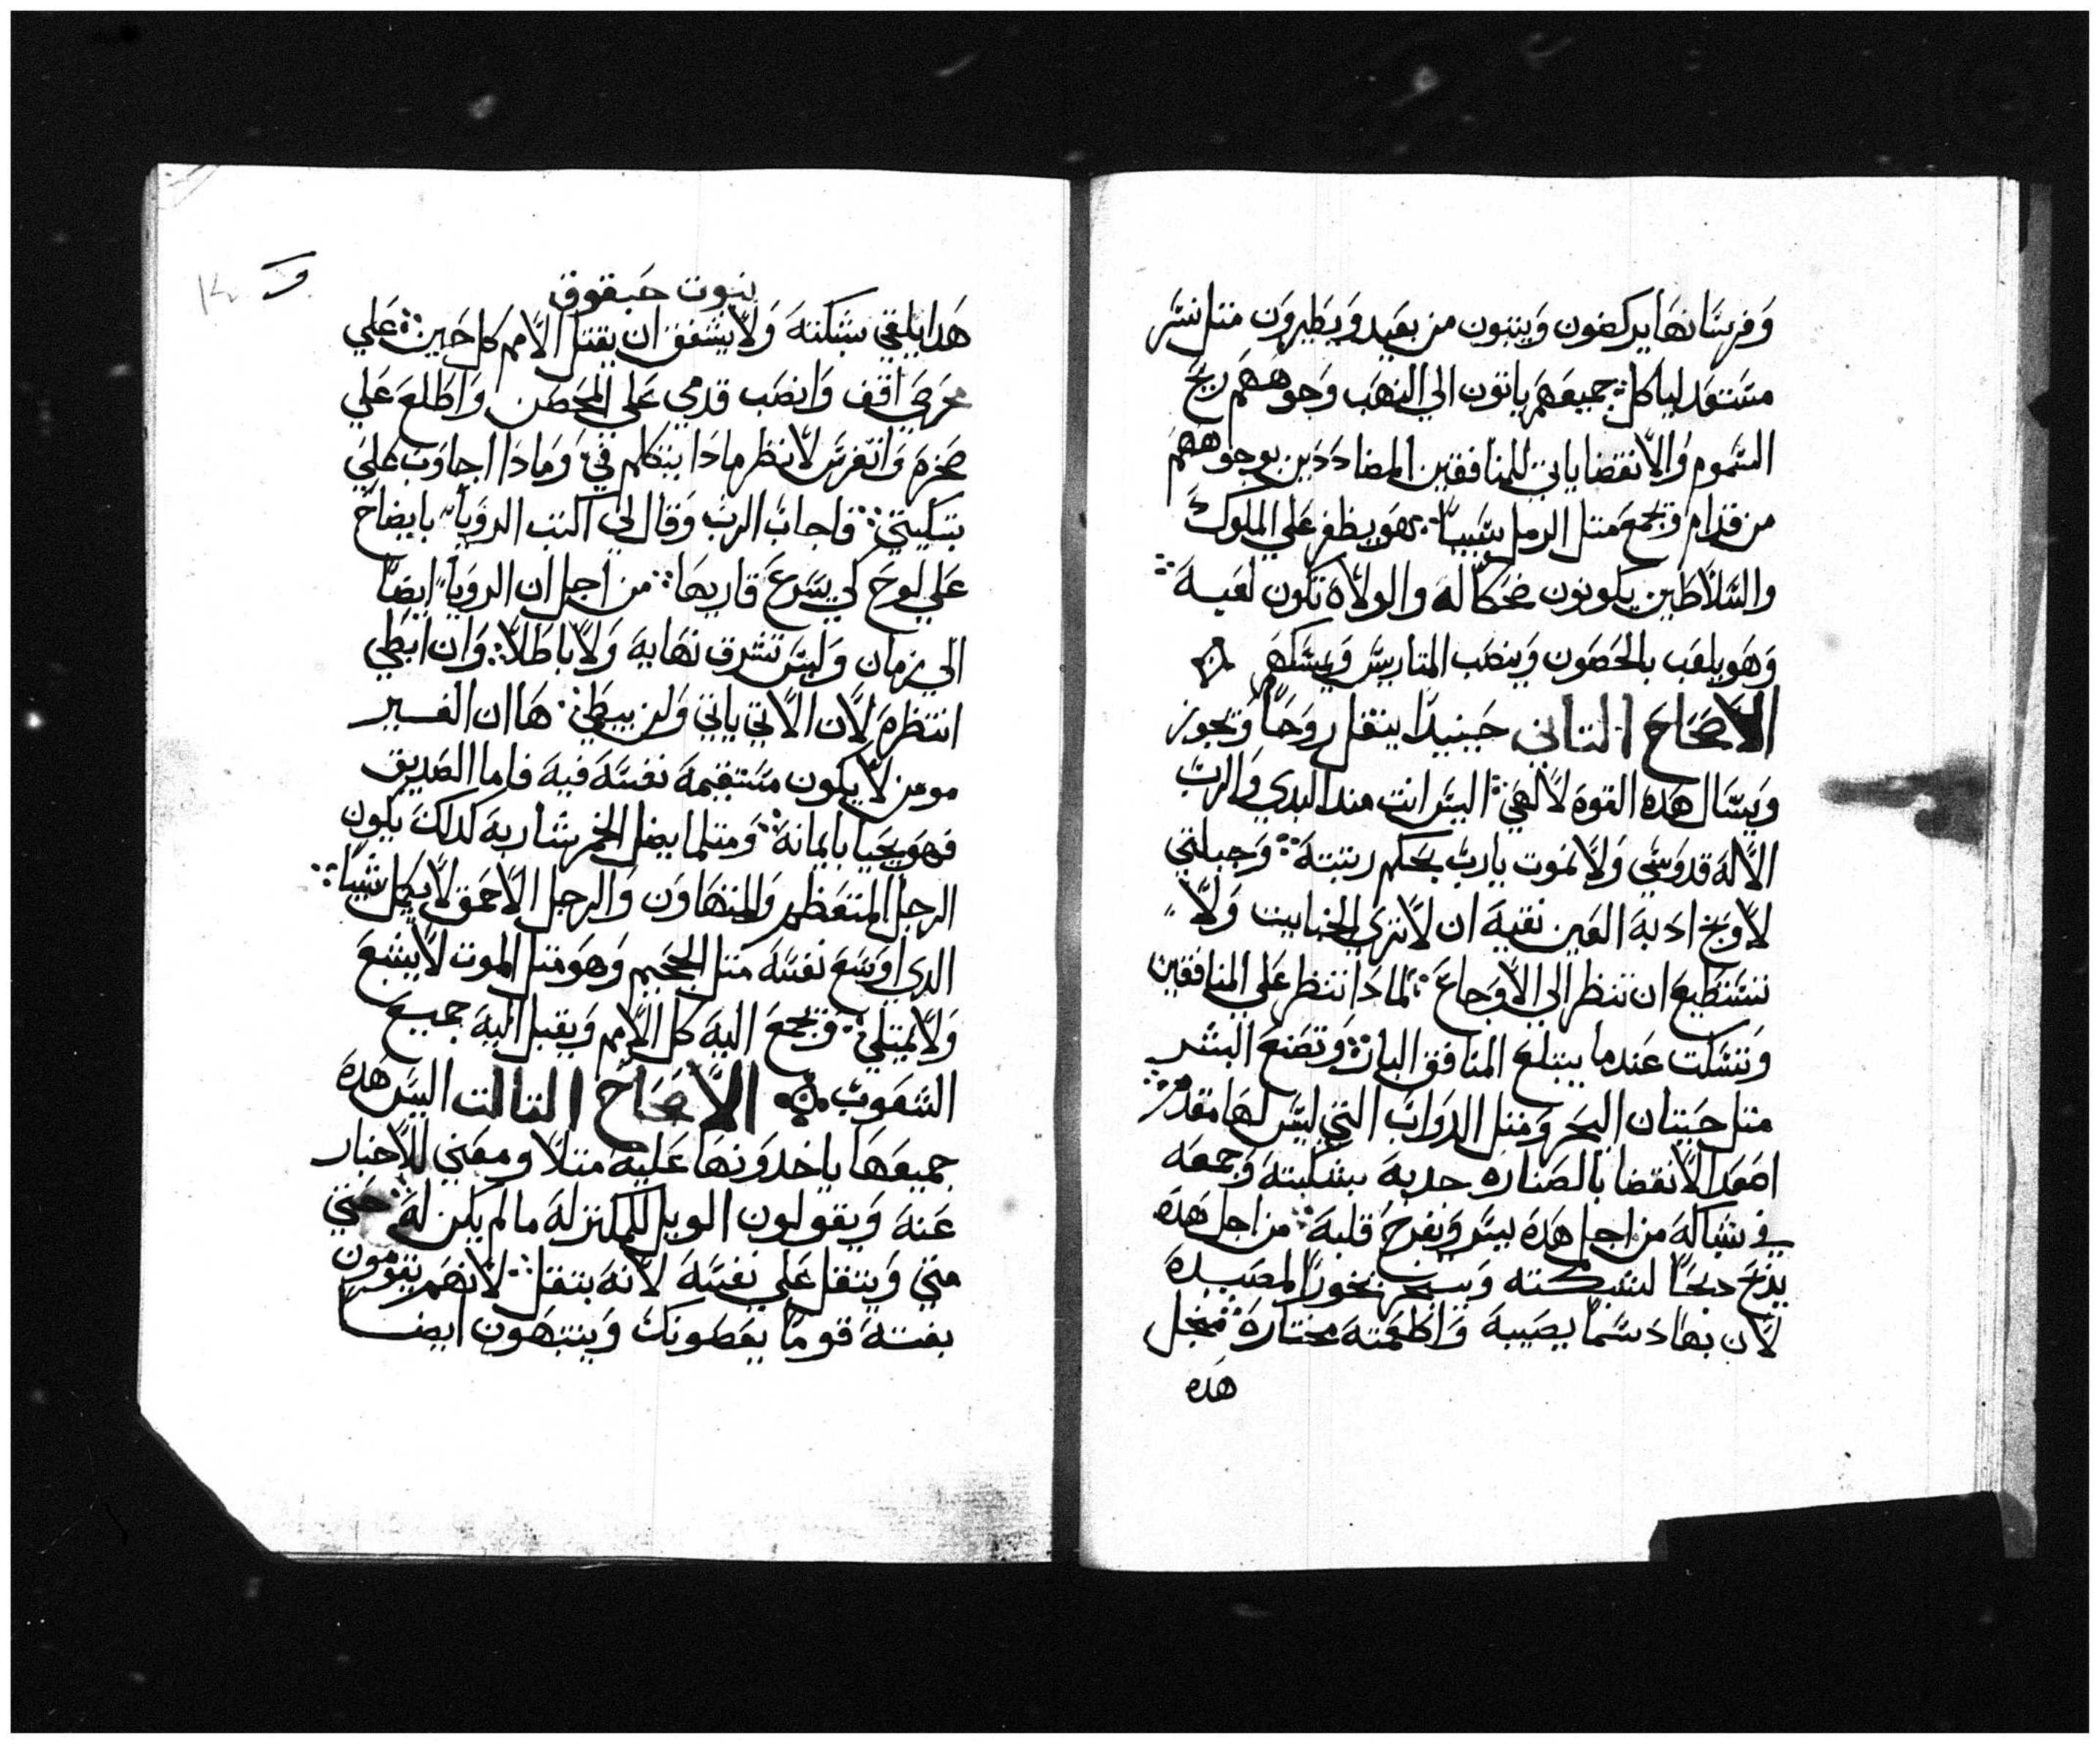 وفرسانها يركضون وينبون من بعيد ويطيرون متل نسر
مستعد لياكل جميعهم ياتون الي النهب وجوههم ريح
السموم والانقضا ياتي للمنافقين المضاددين بوجوههم
من قدام ويجمع متل الرمل سبيا هو يظفر علي الملوك
والسلاطين يكونون ضحكا له والولاه تكون لعبه
وهو يلعب بالحصون وينصب المتاريس ويمسكهم
الاصحاح التاني حينيدا ينتقل روحا ويجوز
ويسال هده القوه لالهي اليس انت مند البدي والرب
الاله قدوسي ولا نموت يارب بحكم رتبته وجبلني
لاوبخ ادبه العين نقيه ان لا تري الخبايت ولا
تستطيع ان تنظر الي الاوجاع لمادا تنظر علي المنافقين
وتسكت عندما يبتلع المنافق البار وتصنع البشر
متل حيتان البحر ومتل الدواب التي ليس لها مقدم
اصعد الانقضا بالصناره جدبه بشبكته وجمعه
في شباكه من اجل هده يسر ويفرح قلبه من اجل هده
يدبح دبحا لشبكته ويبخر بخورا لمصيدة
لان بها دسما يصيبه واطعمته مختاره فمنجل
هده
و
نبوت حبقوق
هدا يلقي شبكته ولا يشفق ان يقتل الامم كل حين علي
محرصي اقف وانصب قدمي علي المحصن واطلع علي
صخره واتفرس لانظر مادا يتكلم في ومادا اجاوب علي
تبكيتي فاجاب الرب وقال لي اكتب الرويا بايضاح
علي لوح لكي يسرع قاريها من اجل ان الرويا ايضا
الي زمان وليس تشرق نهايه ولا باطلا وان ابطي
انتظره لان الاتي ياتي ولن يبطي ها ان الغير
مومن لا يكون مستقيمه نفسه فيه فاما الصديق
فهو يحيا بايمانه ومتلما يضل الخمر شاربه كدلك يكون
الرجل المتعظم والمتهاون والرجل الاحمق لا يكمل شيا
الدي اوسع نفسه متل الجحيم وهو متل الموت لا يشبع
ولا يمتلي ويجمع اليه كل الامم ويقبل اليه جميع
الشعوب الاصحاح التالت اليس هده
جميعها ياخدونها عليه متلا ومعني للاخبار
عنه ويقولون الويل للمكنز له ما لم يكن له حتي
متي ويتقل علي نفسه لانه بتقل لانهم يقومون
بغتة قوما يعضونك وينتبهون ايضا